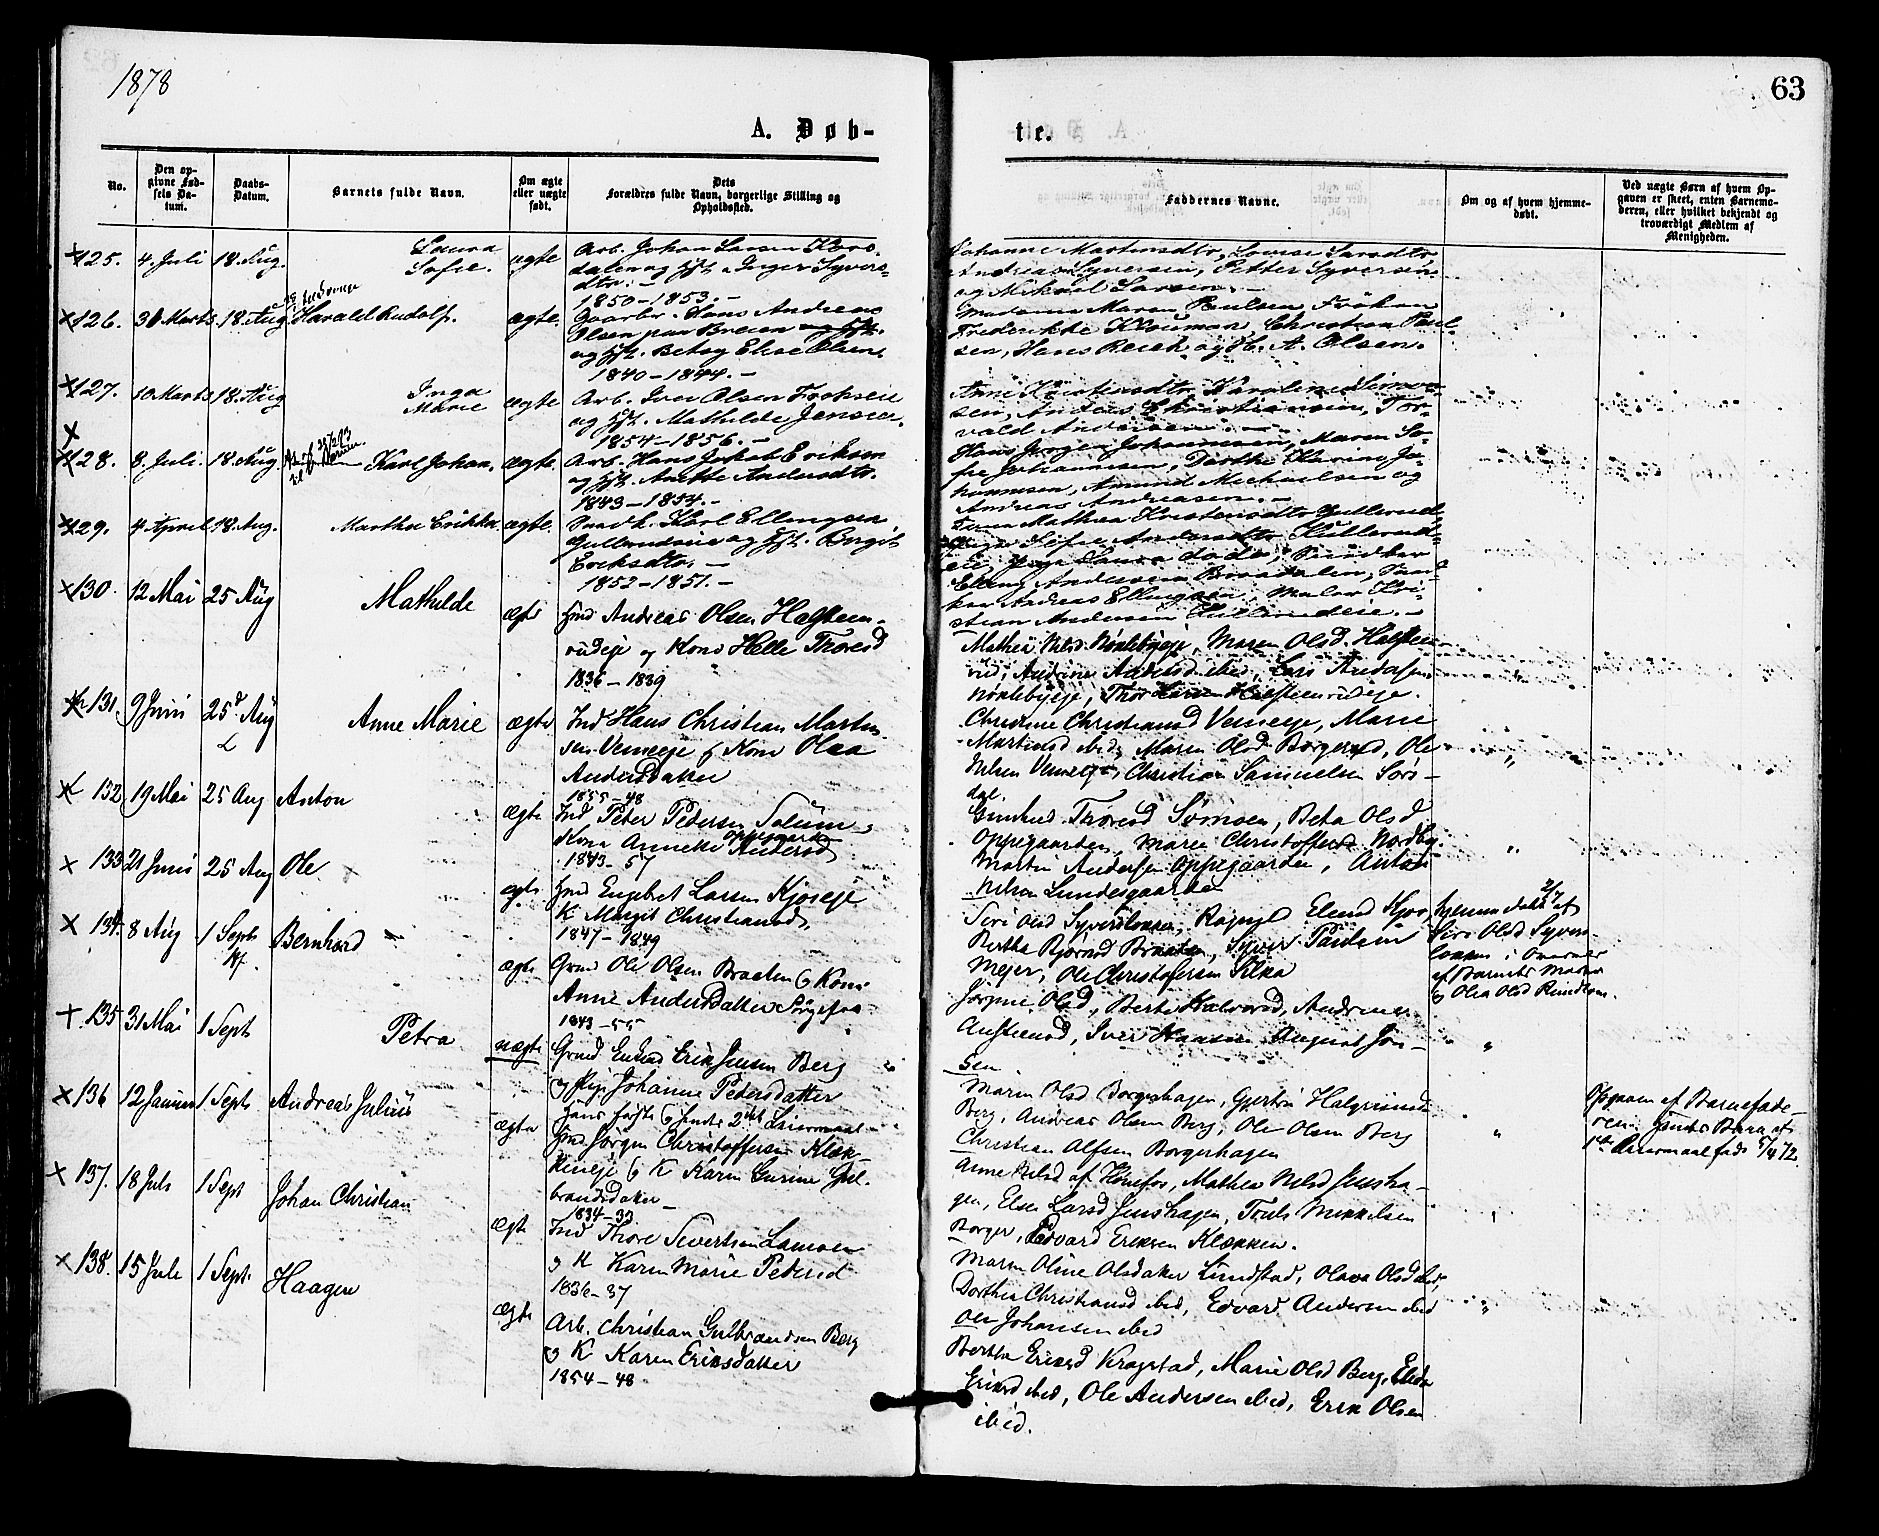 1878
63
A. Døb-
te.
No.
Den op-
givne Fød-
sels Da-
tum.
Daabs-
Datum.
Barnets fulde Navn.
Om ægte
eller uægte
født.
Dets
Forældres fulde Navn, borgerlige Stilling og
Opholdssted.
Faddernes Navne.
Om og af hvem hjemme-
døbt.
Ved uægte Børn af hvem Op-
gaven er skeet, enten Barnemo-
deren, eller hvilket bekjendt og
troværdigt Medlem af
Menigheden.
125. 4. Juli 18. Aug. Laura
Sofie. ægte Arb. Johan Larsen
og Hst. Inger Syvers-
dtr. -
1850-1853. -
Johanne Martinsdtr, Louise Larsdtr,
Andreas Syversen, Petter Syversen
og Mikael Larsen. -
126. 30 Marts 18. Aug Harald Rudolf. ægte. Gaarbr. Hans Andreas
Olsen paa Breien
og Hst. Betsy Elise Olsen,
1840-1844. -
Madame Maren Paulsen, Frøken
Frederikke Klouman, Christian Paul-
sen, Hans og H. A. Olsen.
127. 10 Marts 18. Aug Inga
Marie ægte Arb. Iver Olsen
og Hst. Mathilde Jensen.
1854-1856. -
Anne Karoline Simon-
sen, Anders Christiansen, Tor-
vald Andersen. -
128. 8. Juli 18. Aug Karl Johan. ægte Arb. Hans Jakob Eriksen
og Hst. Anette Andersdtr.
1849-1854. -
Hans Jørgen Johannesen, Maren So-
fie Johannesen, Dorthe Karine Jo-
hannesen, Amund Michaelsen og
Andreas Andreasen. -
129. 4 April 18. Aug. Martha Erikka. ægte. Karl Ellingsen
og Hst. Birgit
Eriksdtr. -
1852-1851. -
Mathea Kristensdtr Gullerud,
Sofie Andersdtr
Elling Andersen Braadalen,
Andreas Ellingsen, Maler Kri-
stian Andersen
130. 12 Mai 25 Aug Mathilde ægte Hmd Andreas Olsen Halsteen-
rudeje og Kone Helle Thoresd
1836-1839
Mathea Nilsd Nøklebyeje, Maren Olsd. Halsteen-
rud, Andrine Andersd ibid, Lars Andersen
Nøklebyeje, Thor Larsen Halsteenrudeje.
131 9 Juni 25d Aug Anne Marie ægte Ind Hans Christian Martin-
sen Verneeje & Kone Olea
Andersdatter
1855-48
Christine Christiansd Verneeje, Marie
Martinsd ibid, Maren Olsd Borgerud, Ole
Nilsen Verneeje, Christian Samuelsen Sørs-
dal
132 19 Mai 25 Aug Anton ægte Ind Peter Pedersen Solum-
Oppegaarden
Kone Annette Andersd
1843 57
Gunhild Thoresd Sømoen, Beta Olsd
Oppegaarden, Maren Christoffersd Nordby
Martin Andersen Oppegaarden, Anton
Nilsen Lundesgaarden
133 21 Juni 25 Aug Ole ægte Hmd Engebret Larsen Kjoseje
K Margit Christiansd,
1847-1849
Siri Olsd Syverslokken, Ragnhild Elend
Bertha Bjørnsd Braaten, Syver Paulsen
Mejer, Ole Christofersen Klæa
hjemmedøbt 2/7 af
Siri Olsd Syvers-
løkken i Overvær
af Barnets Moder
og Olea Olsd
134. 8 Aug 1 Septb Bernhard ægte Grmd Ole Olsen Braaten & Kone
Anne Andersdatter
1843-55
Jørgine Olsd, Berte Halvorsd, Andrine
Austensd, Iver Hansen August Jon-
sen
135 31 Mai 1 Sept Petra uægte Grmd Enkmd Erik Jensen Berg
og Pige Johanne Pedersdatter
hans første & hendes 2det Leiermaal
Maren Olsd Borgerhagen, Gjertru Halgrimsd
Berg, Andreas Olsen Berg, Ole Olsen Berg
Christian Alfsen Borgerhagen
Opgaven af Barnefade-
ren.
1ste Leiermaal 5/4 72.
136 12 Januar 1 Septb Andreas Julius ægte Hmd Jørgen Christoffersen Klæk-
keneje & K Karen Gurine Gul-
brandsdatter -
1834-39
Anne Nilsd af Hønefos, Mathea Nilsd Jensha-
gen, Else Larsd Jenshagen, Truls Mikkelsen
Borger, Edvard Eriksen Klækken.
137. 18 Juli 1 Sept Johan Christian ægte Ind Thore Sivertsen Lamoen
og K Karen Marie Pedersd
1836-37
Maren Oline Olsdatter Lundstad, Olava Olsd ibid,
Dorthea Christiansd ibid, Edvard Andersen ibid
Ole Johansen ibid
138. 15 Juli 1 Sept. Haagen ægte Arb. Christian Gulbrandsen Berg
og K Karen Eriksdatter
1854-48
Bertha Eriksd Kragstad, Marie Olsd Berg,
Eriksd ibid, Ole Andersen ibid, Erik Olsen
ibid.